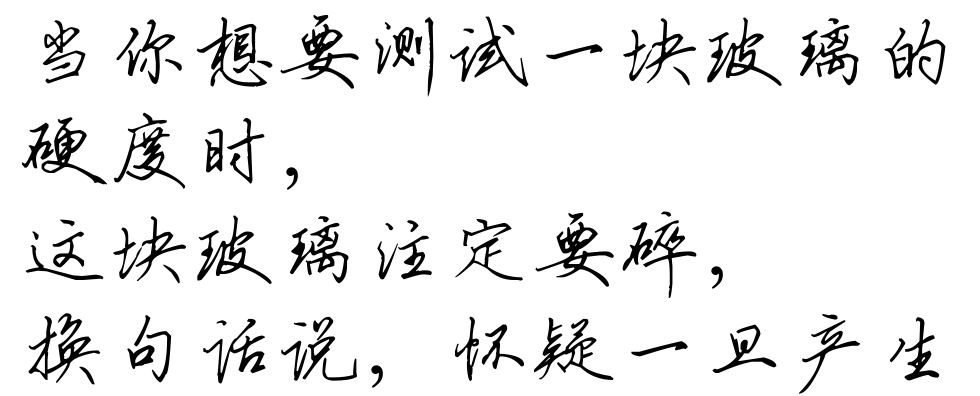 当你想要测试一块玻璃的
硬度时，
这块玻璃注定要碎，
换句话说，怀疑一旦产生